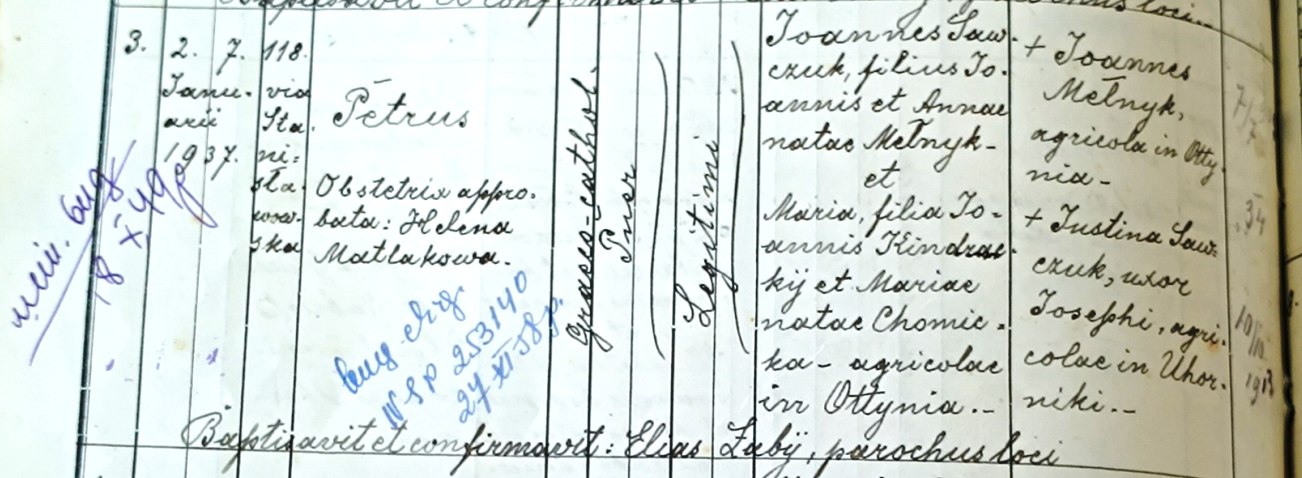 3.
2. 7.
Janu-
arii
1937.
118.
via
Sta.
ni=
sła-
wow-
ska
Petrus
Obstetrix appro-
bata: Helena
Matlakowa.
Graeco-cathol.
Puer
Legitimi
Joannes Saw-
czuk, filius Jo-
annis et Annae
natae Mełnyk-
et
Maria, filia Jo-
annis Kindrac-
kij et Mariae
natae Chomic-
ka - agricolae
in Ottynia.-
+ Joannes
Mełnyk,
agricola in Otty-
nia-
+ Justina Saw=
czuk, uxor
Josephi, agri-
colae in Uhor-
niki.-
Baptisavit et confirmavit: Elias Żabij, parochus loci
18 X 49
253140
27 XI 58 р.